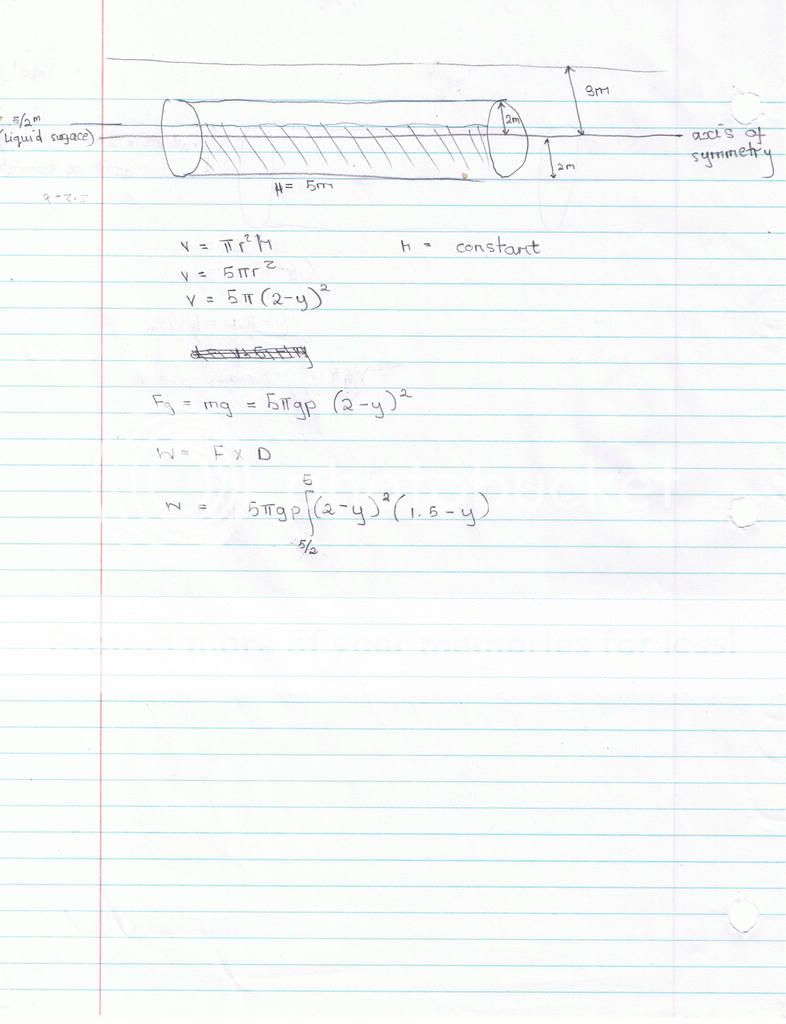 3m
5/2m
2m
(liquid surface)
axis of symmetry
2m
H = 5m
V = πr²H
H = constant
V = 5πr²
V = 5π(2-y)²
Fg = mg = 5πgρ (2-y)²
W = F x D
W = 5πgρ ∫_{5/2}^{5} (2-y)² (1.5-y)